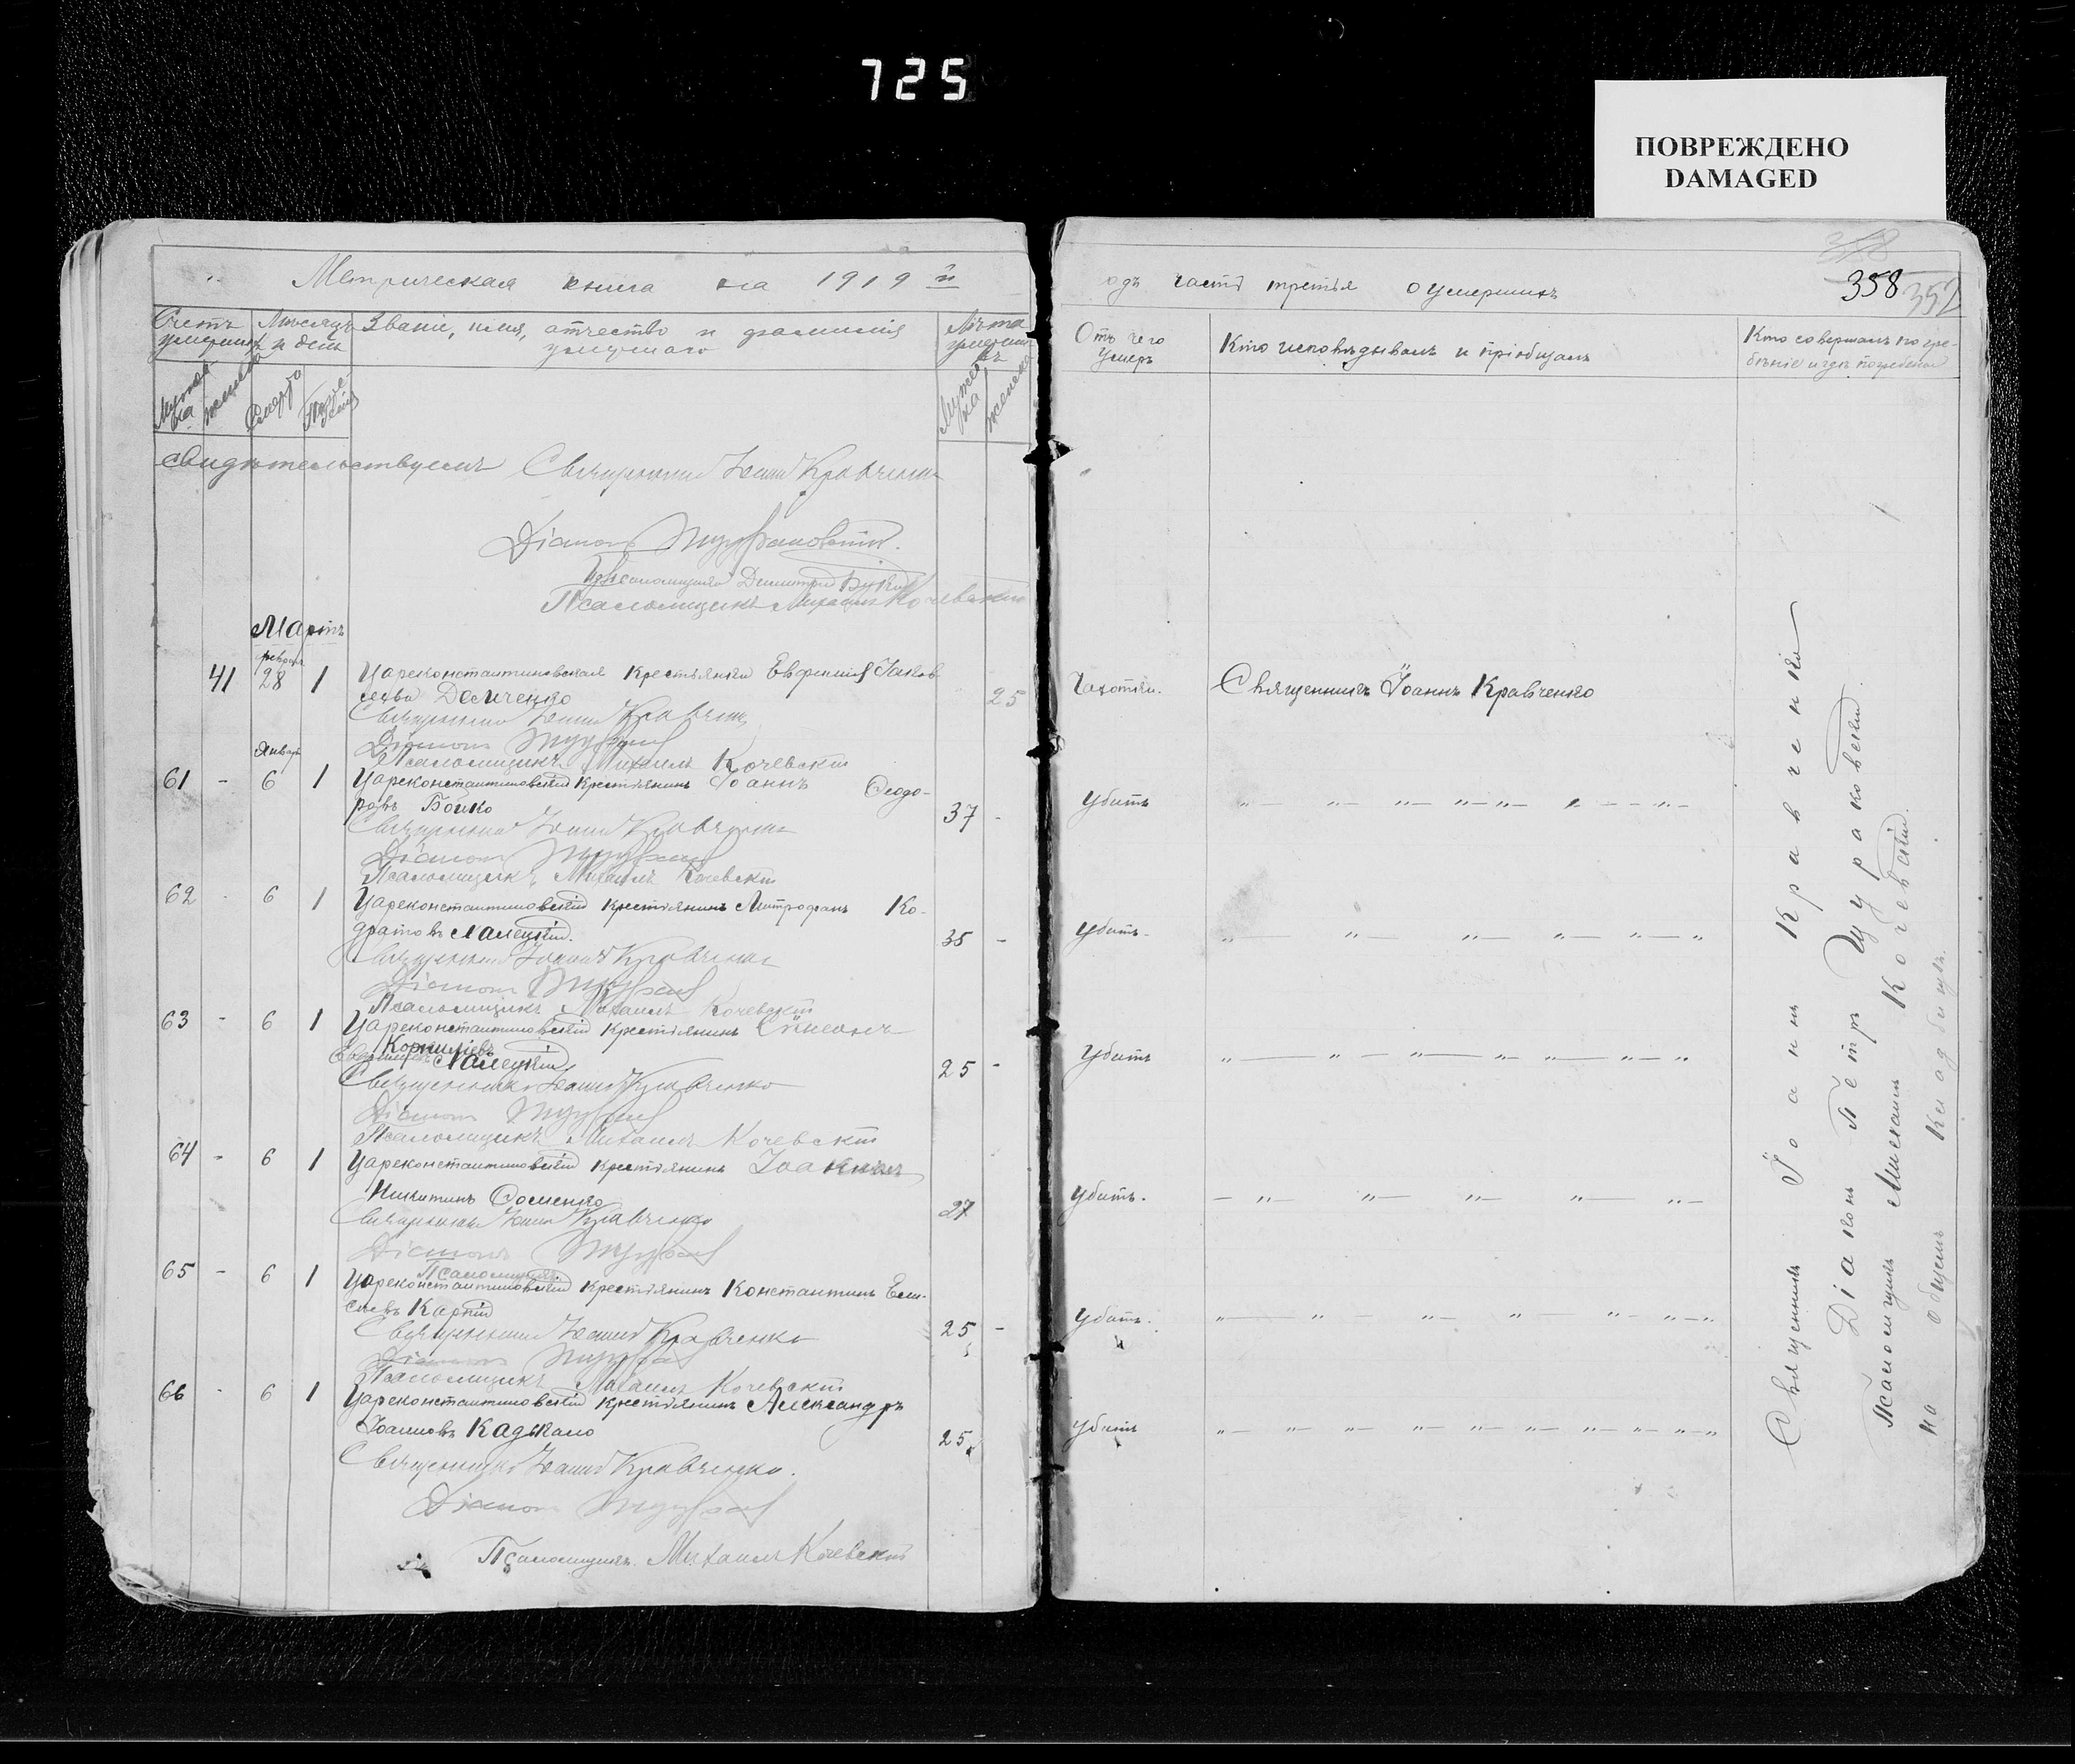 725
ПОВРЕЖДЕНО
DAMAGED
Метрическая книга на 1919 й
Счетъ умершихъ
Мѣсяцъ и день
Званіе, имя, отчество и фамилія умершаго
Лѣта умершихъ
Мужска
женска
Смерти
Мужска
женска
свидѣтельствуемъ Священникъ Іоаннъ Кравченко
Діаконъ
Псаломщикъ Димитрій
Псаломщикъ Михаилъ Кочевскій
Мартъ
февраля
41 28 1 Цареконстантиновская крестьянка Евфимія Іаков-
лева Демченко 25
Священникъ Іоаннъ Кравченко
Діаконъ
Псаломщикъ Михаилъ Кочевскій
Январь
61 - 6 1 Цареконстантиновскій крестьянинъ Іоаннъ Ѳеодо-
ровъ Бойко 37 -
Священникъ Іоаннъ Кравченко
Діаконъ
Псаломщикъ Михаилъ Кочевскій
62 - 6 1 Цареконстантиновскій крестьянинъ Митрофанъ Ко-
дратовъ 35 -
Священникъ Іоаннъ Кравченко
Діаконъ
Псаломщикъ Михаилъ Кочевскій
63 - 6 1 Цареконстантиновскій крестьянинъ Сѵмеонъ
Корниліевъ
25 -
Священникъ Іоаннъ Кравченко
Діаконъ
Псаломщикъ Михаилъ Кочевскій
64 - 6 1 Цареконстантиновскій крестьянинъ Іоакимъ
Никитинъ Ѳоменко 27
Священникъ Іоаннъ Кравченко
Діаконъ
Псаломщикъ
65 - 6 1 Цареконстантиновскій крестьянинъ Константинъ Ели-
сеевъ 25 -
Священникъ Іоаннъ Кравченко
Діаконъ
Псаломщикъ Михаилъ Кочевскій
66 - 6 1 Цареконстантиновскій крестьянинъ Александръ
Іоанновъ 25
Священникъ Іоаннъ Кравченко.
Діаконъ
Псаломщикъ Михаилъ Кочевскій
одъ часть третья о умершихъ
358
Отъ чего умеръ
Кто исповѣдывалъ и пріобщалъ
Кто совершалъ погре-
бѣніе и гдѣ погребены
Чахотки. Священникъ Іоаннъ Кравченко
убитъ
убитъ
убитъ
убитъ.
убитъ.
убитъ
Священникъ Іоаннъ Кравченко
Діаконъ Петръ
Псаломщикъ Михаилъ Кочевскій
на общемъ кладбищѣ.